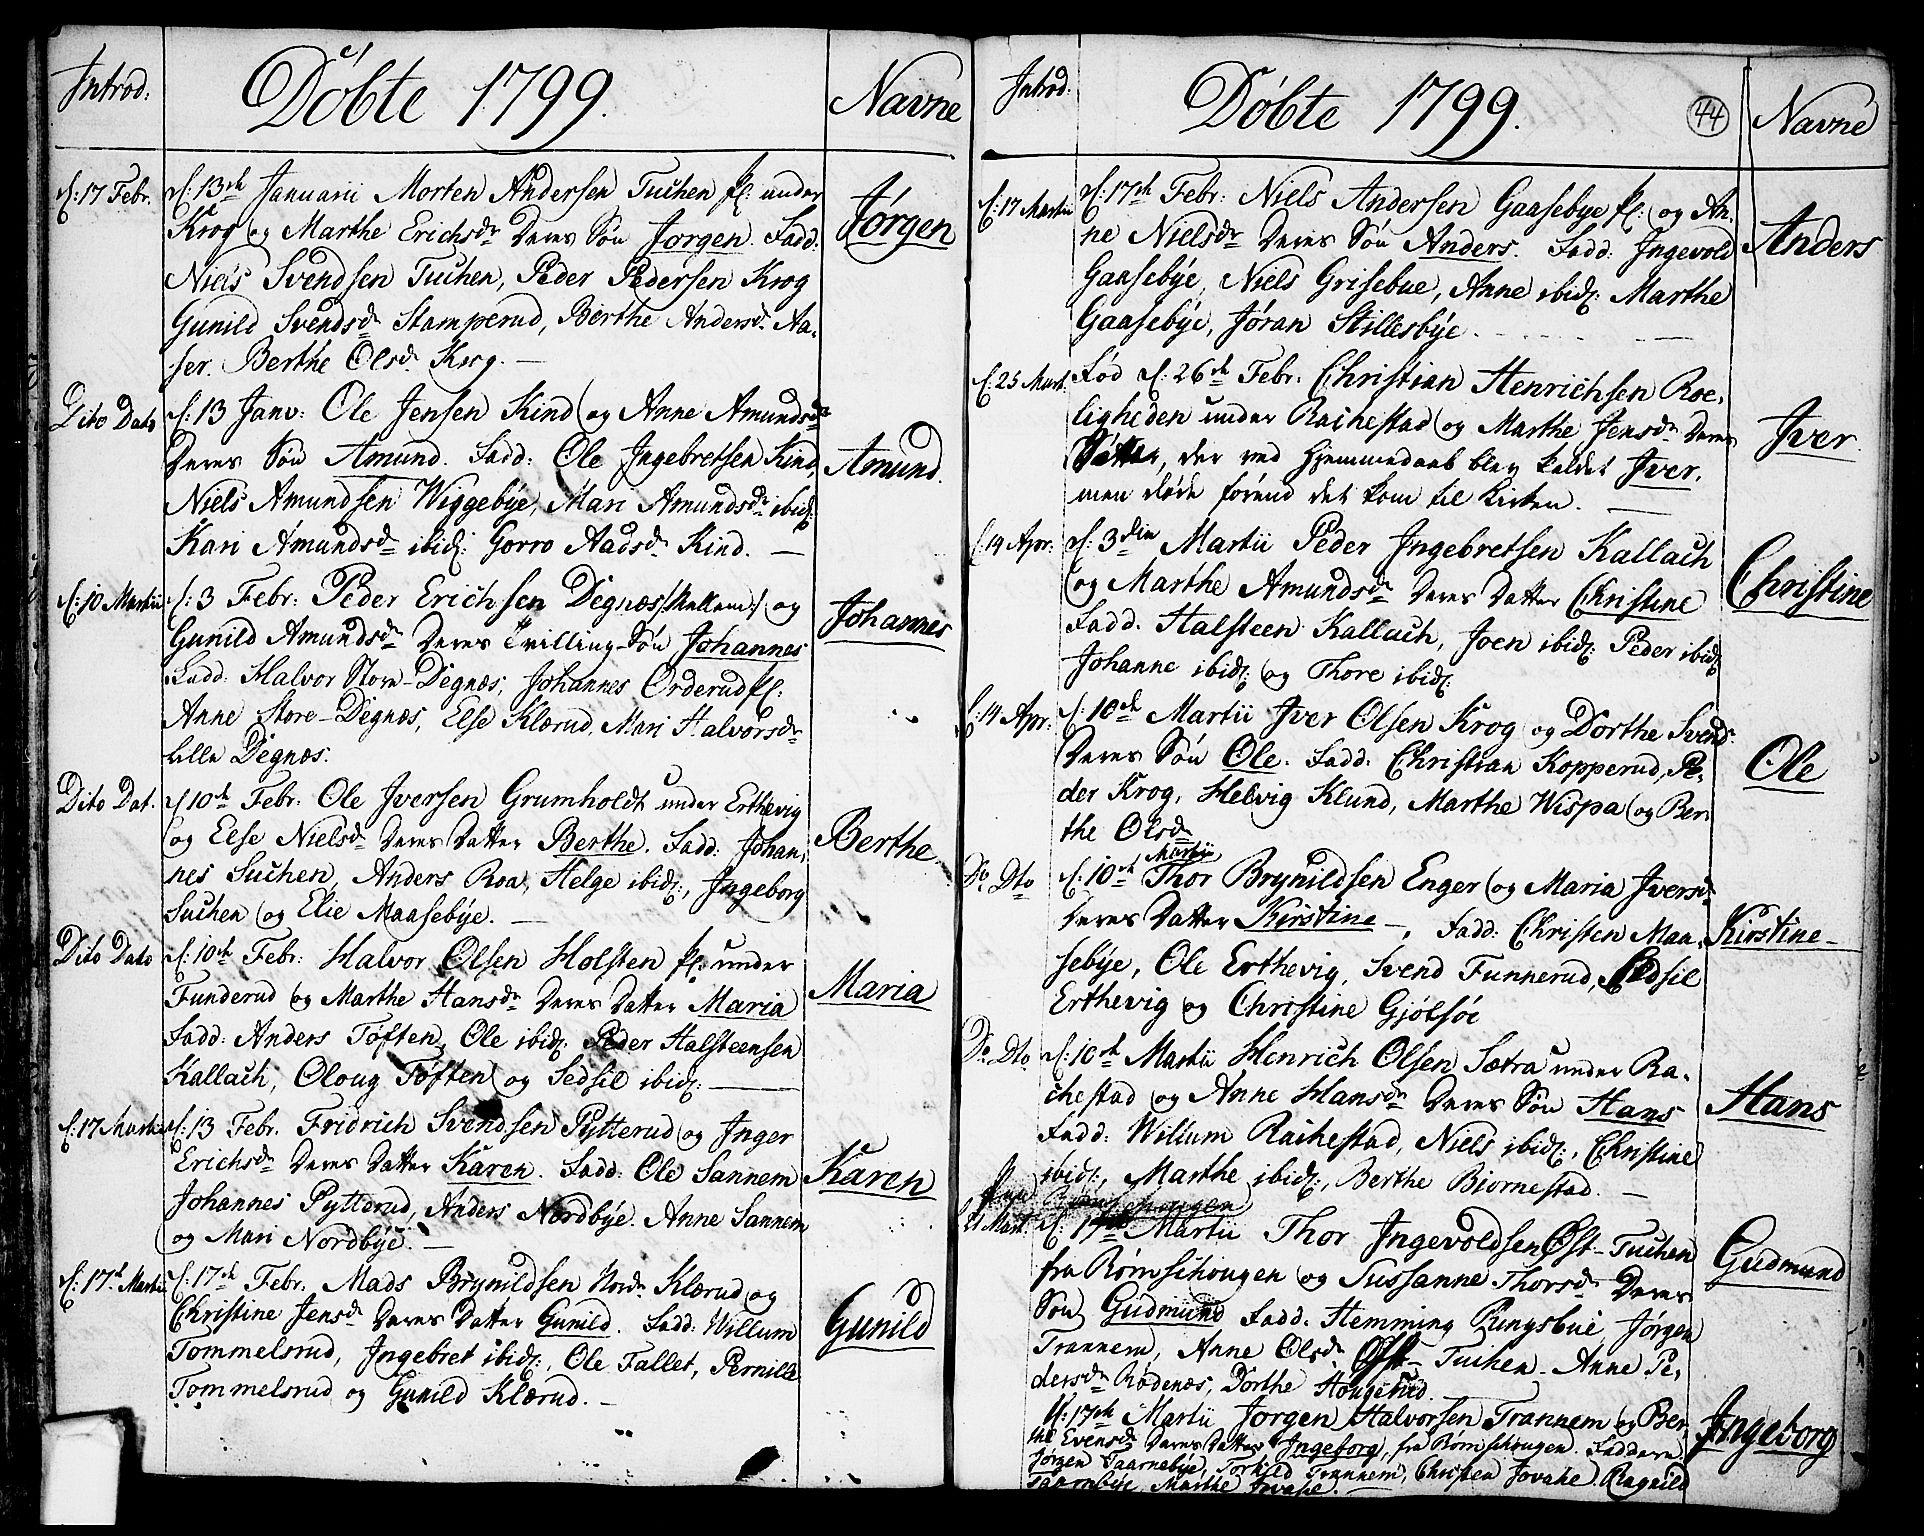 Introd:
Döbte 1799.
Navne
d: 17 Febr.
d: 13de Januarii Morten Andersen Tuchen pl: under
Krog og Marthe Erichsdr Deres Sön Jörgen. Fadd:
Niels Svendsen Tuchen, Peder Pedersen Krog
Gunild Svendsdr Stamperud, Berthe Andersdr Aa-
ser. Berthe Olsdr Krog. —
Jörgen
Dito Dato
d: 13 Janv: Ole Jensen Kind og Anne Amundsdr
Deres Sön Amund. Fadd: Ole Ingebretsen Kind,
Niels Amundsen Wiggebÿe, Mari Amundsdr ibid:
Kari Amundsdr ibid: Gorro Aadsdr Kind. —
Amund.
d: 10 Martii
d: 3 Febr: Peder Erichsen Degnæs /: Mellem :/ og
Gunild Amundsdr Deres Tvilling-Sön Johannes
Fadd: Halvor Store-Degnæs, Johannes Orderud pl:
Anne Store-Degnæs, Else Klærud, Mari Halvorsdr
Lille Degnæs.
Johannes
Dito Dat.
d 10de Febr: Ole Iversen Grumholdt under Erthevig
og Else Nielsdr Deres Datter Berthe. Fadd: Johan-
nes Suchen, Anders Roa, Helge ibid:, Ingeborg
Suchen og Elie Maasebÿe. —
Berthe
Dito Dato
d: 10de Febr: Halvor Olsen Holsten pl: under
Funderud og Marthe Hansdr Deres Datter Maria
Fadd: Anders Töften, Ole ibid: Peder Halsteensen
Kallach, Oloug Töften og Sedsil ibid: —
Maria
d: 17 Martii
d: 13 Febr. Fridrich Svendsen Pÿtterud og Inger
Erichsdr Deres Datter Karen. Fadd: Ole Sannem
Johannes Pÿtterud, Anders Nordbÿe. Anne Sannem
og Mari Nordbÿe. —
Karen
d: 17d Martii
d: 17de Febr. Mads Brynildsen Nordr Klærud og
Christine Jensdr Deres Datter Gunild. Fadd: Willum
Tommelsrud, Ingebret ibid:, Ole Fallet, Pernille
Tommelsrud og Gunild Klærud. —
Gunild
Introd:
Döbte 1799.
44
Navne
d: 17 Martii
d: 17de Febr: Niels Andersen Gaasebye pl: og An-
ne Nielsdr Deres Sön Anders. Fadd: Ingevold
Gaasebÿe, Niels Grisebue, Anne ibid: Marthe
Gaasebÿe, Jöran Stillesbÿe. —
Anders
d: 25 Mart:
Föd d: 26de Febr: Christian Henrichsen Roe-
ligheden under Rachestad og Marthe Jensdr Deres
der ved Hjemmedaab blev kaldet Iver,
men döde förend det kom til Kirken. —
Iver.
d: 14 Apr:
d: 3die Martii Peder Ingebretsen Kallach
og Marthe Amundsdr Deres Datter Christine
Fadd: Halsteen Kallach, Joen ibid: Peder ibid:
Johanne ibid: og Thore ibid:
Christine
d: 14 Apr:
d: 10de Martii Iver Olsen Krog og Dorthe Svendsdr
Deres Sön Ole. Fadd: Christian Kopperud, Pe-
der Krog, Helvig Klund, Marthe Wispa og Ber-
the Olsdr
Ole
Do Dto
d: 10de Martii Thor Brynildsen Enger og Maria Iversdr
Deres Datter Kirstine —, Fadd: Christen Maa-
sebÿe, Ole Erthevig, Svend Funnerud, Sedsil
Erthevig og Christine Gjölsöe
Kirstine —
Do Dto
d: 10de Martii Henrich Olsen Sætra under Ra-
chestad og Anne Hansdr Deres Sön Hans
Fadd: Willum Rachestad, Niels ibid:, Christine
ibid:, Marthe ibid:, Berthe Biornestad. —
Hans
21 Mart:
d: 17de Martii Thor Ingevoldsen Öst-Tuchen
fra Römschougen og Sussanne Thorsdr Deres
Sön Gudmund Fadd: Hemming Ringsbue, Jörgen
Trannem, Anne Olsdr Öst-Tuchen. Anne Pe-
dersdr Rödenæs, Dorthe Hougerud.
Gudmund
d: 17de Martii Jörgen Halvorsen Trannem og Ber-
the Evensdr Deres Datter Ingeborg, fra Römschougen. Faddere
Jörgen Taarnebÿe, Torkild Trannem, Christen Jovahe. Ragnild
Taarnebÿe, Marthe Jovahe. —
Ingeborg